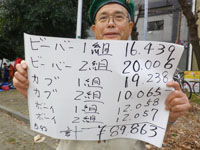 ビーバー 1組 16.439
ビーバー 2組 20.006
カブ 1組 19.238
カブ 2組 10.065
ボーイ 1組 12.058
ボーイ 2組 12.057
計 ¥89.863